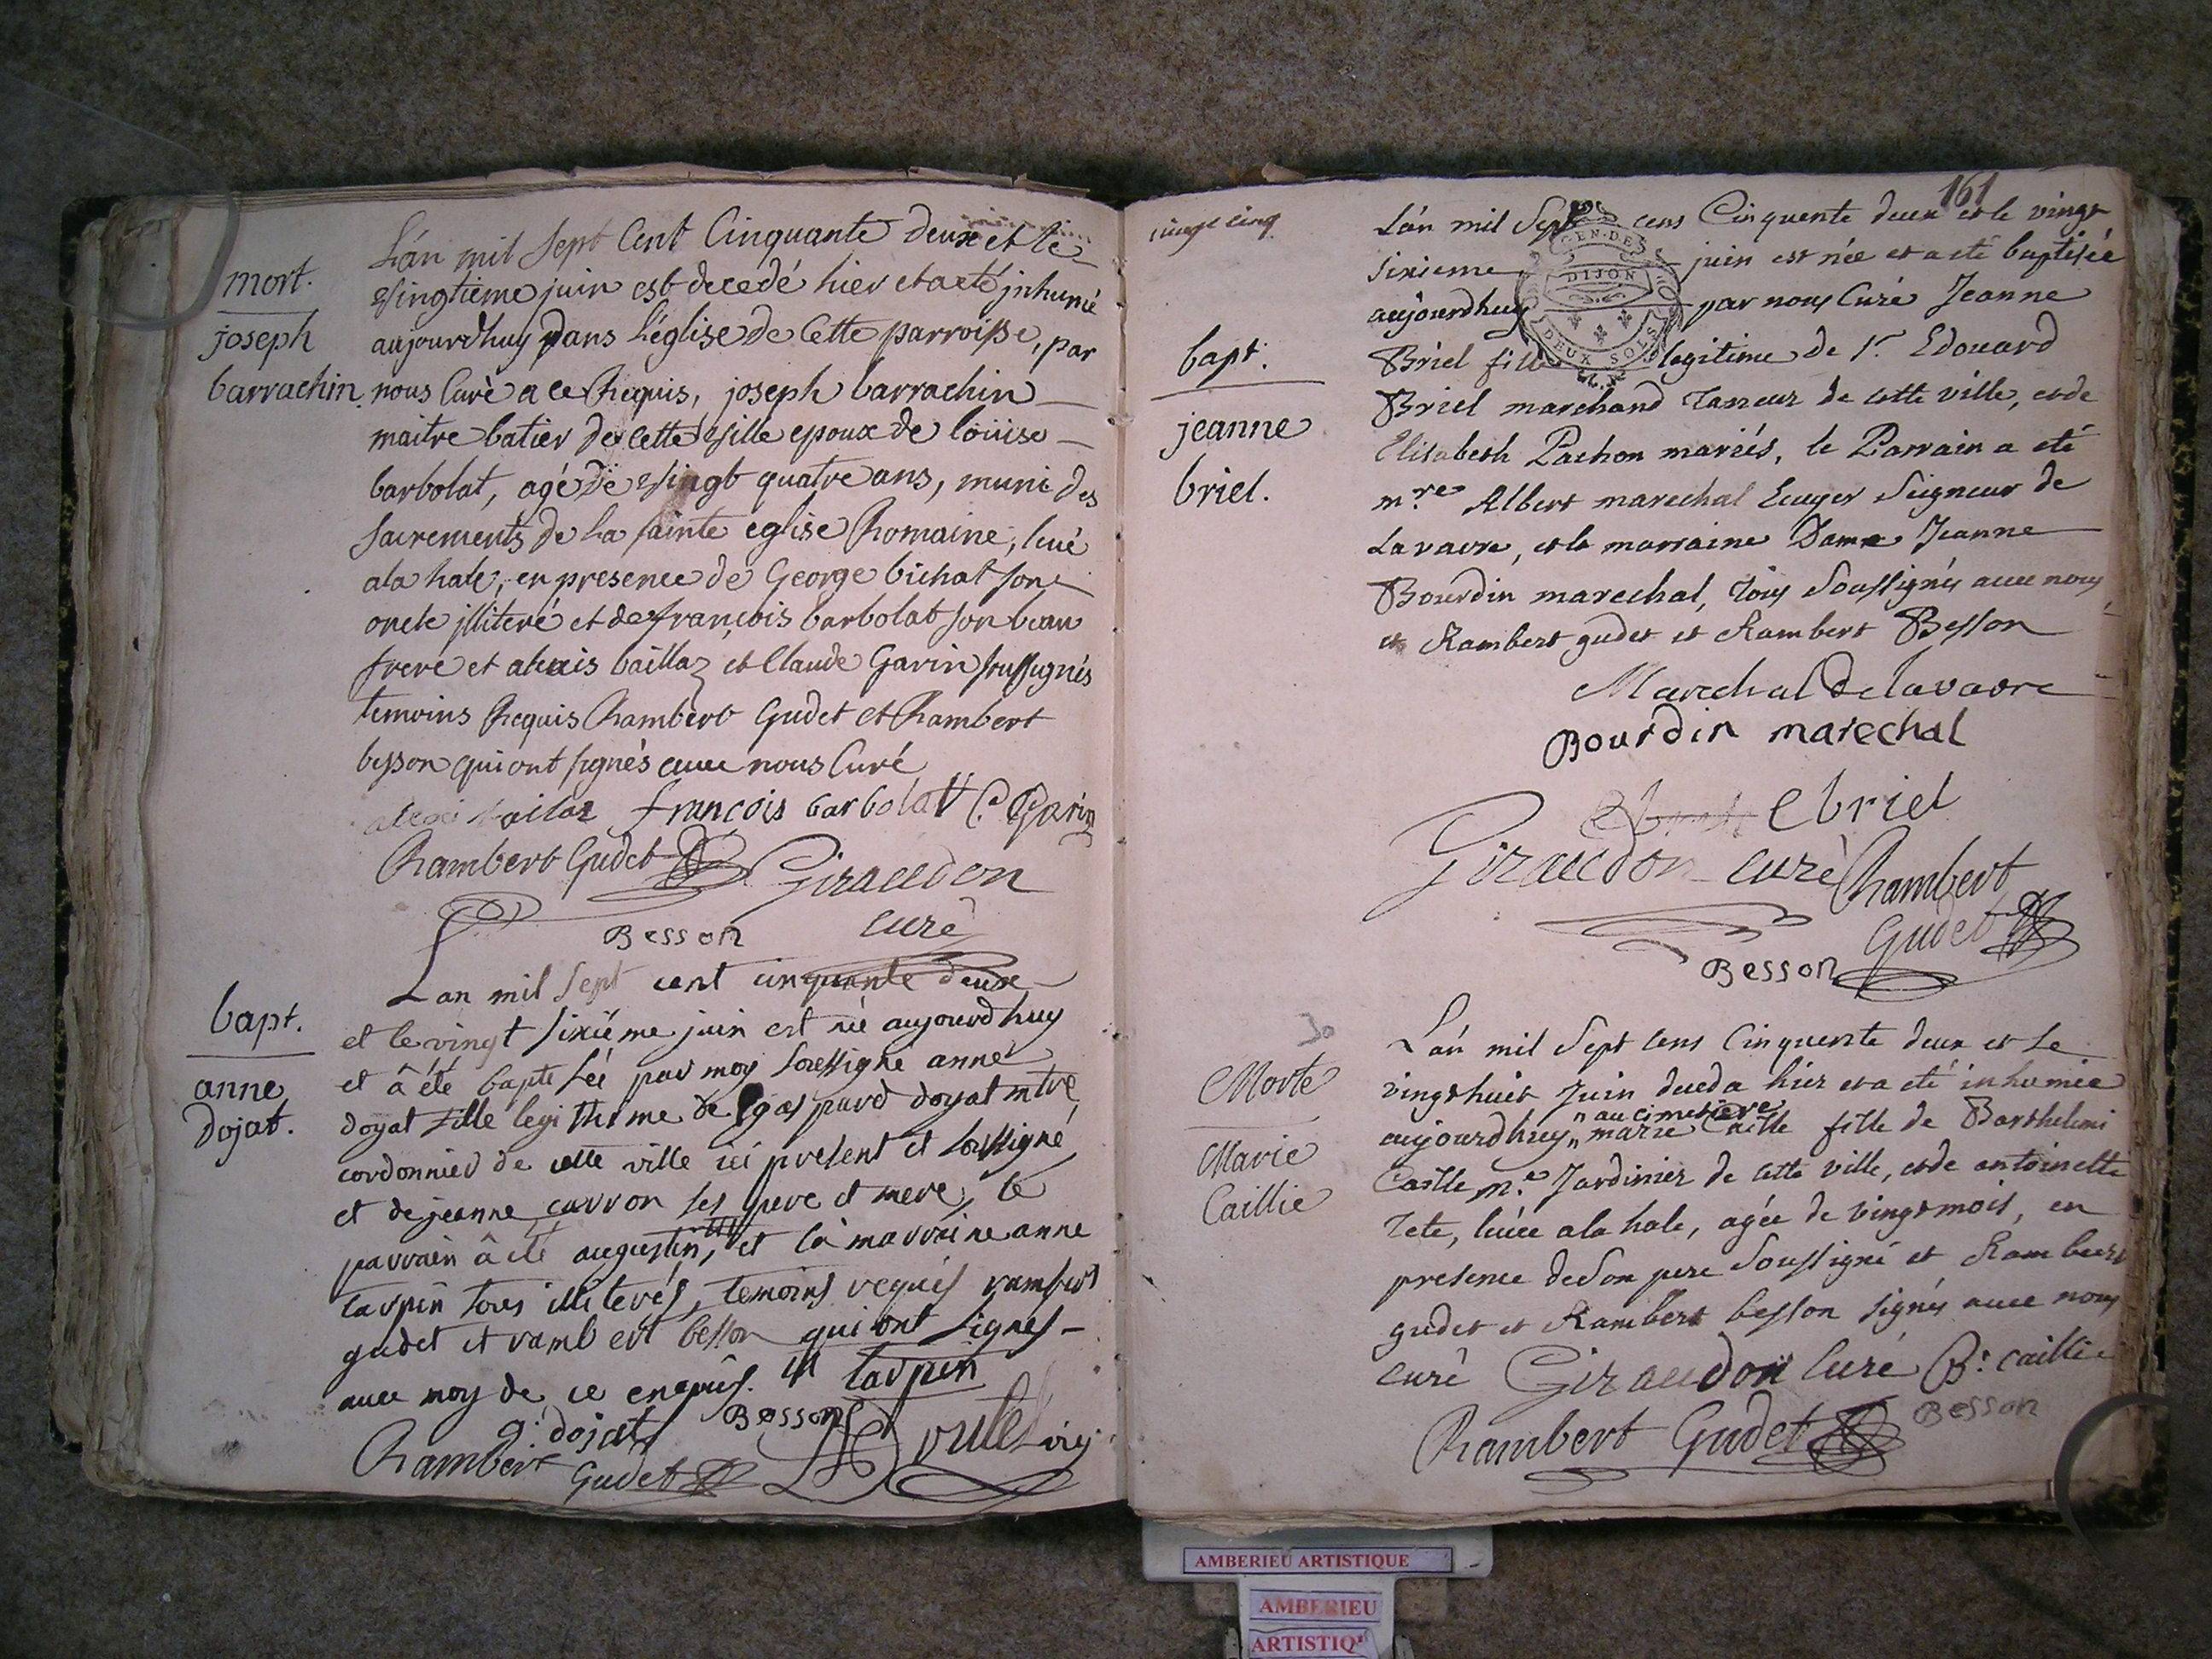 mort.
joseph
barrachin.
L'an mil sept Cent Cinquante deux et le
vingtieme juin est decedé hier et a eté inhumé
aujourdhuy dans l'église de Cette parroisse, par
nous Curé a ce Requis, joseph barrachin
maitre batier de cette ville epoux de loüise
barbolat, agé de vingt quatre ans, muni des
sacrements de la sainte eglise Romaine, levé
a la hale, en presence de George bichat son
oncle illiteré et de françois barbolat son beau
frere et alexis baillaz et Claude Garin soussignés
temoins Requis Rambert Gudet et Rambert
besson qui ont signés avec nous Curé
françois barbolat C. Garin
Rambert Gudet Giraudon
Besson curé
bapt.
anne
dojat.
Lan mil sept cent cinquante deux
et le vingt sixiéme juin est née aujourdhuy
et à été baptisée par moy soussigné anne
doyat fille legitime de gaspard doyat mtre
cordonnier de cette ville ici present et soussigné
et de jeanne carron ses pere et mere, le
parrain à été augustin, et la marraine anne
tarpin tous illiterés, temoins requis rambert
gudet et rambert besson qui ont signés
avec moy de ce enquis. tarpin
g. dojat Besson
Rambert Gudet
161
vingt cinq
bapt.
jeanne
briel.
L'an mil Sept cens Cinquente deux et le vingt
sixieme juin est née et a eté baptisée
aujourdhuy par nous Curé Jeanne
Briel fille legitime de Sr. Edouard
Briel marchand Tanneur de cette ville, et de
Elisabeth Pachon mariés, le Parrain a eté
mre. Albert marechal Ecuyer Seigneur de
Lavavre, et la marraine Dame Jeanne
Bourdin marechal, tous Soussignés avec nous
et Rambert gudet et Rambert Besson
GEN. DE
DIJON
DEUX SOLS
Marechal Delavavre
Bourdin marechal
Ebriel
Giraudon curé Rambert
Gudet
Besson
Morte
Marie
Caillie
L'an mil Sept cens Cinquente deux et le
vingthuit Juin deceda hier et a eté inhumée
au cimetiere
aujourdhuy marie Caille fille de Barthelemi
Caille me. Jardinier de cette ville, et de antoinette
Tete, levée a la hale, agée de vingtmois, en
presence de Son pere Soussigné et Rambert
gudet et Rambert besson signés avec nous
curé Giraudon curé B. caillie
Rambert Gudet Besson
AMBERIEU ARTISTIQUE
AMBERIEU
ARTISTIQ